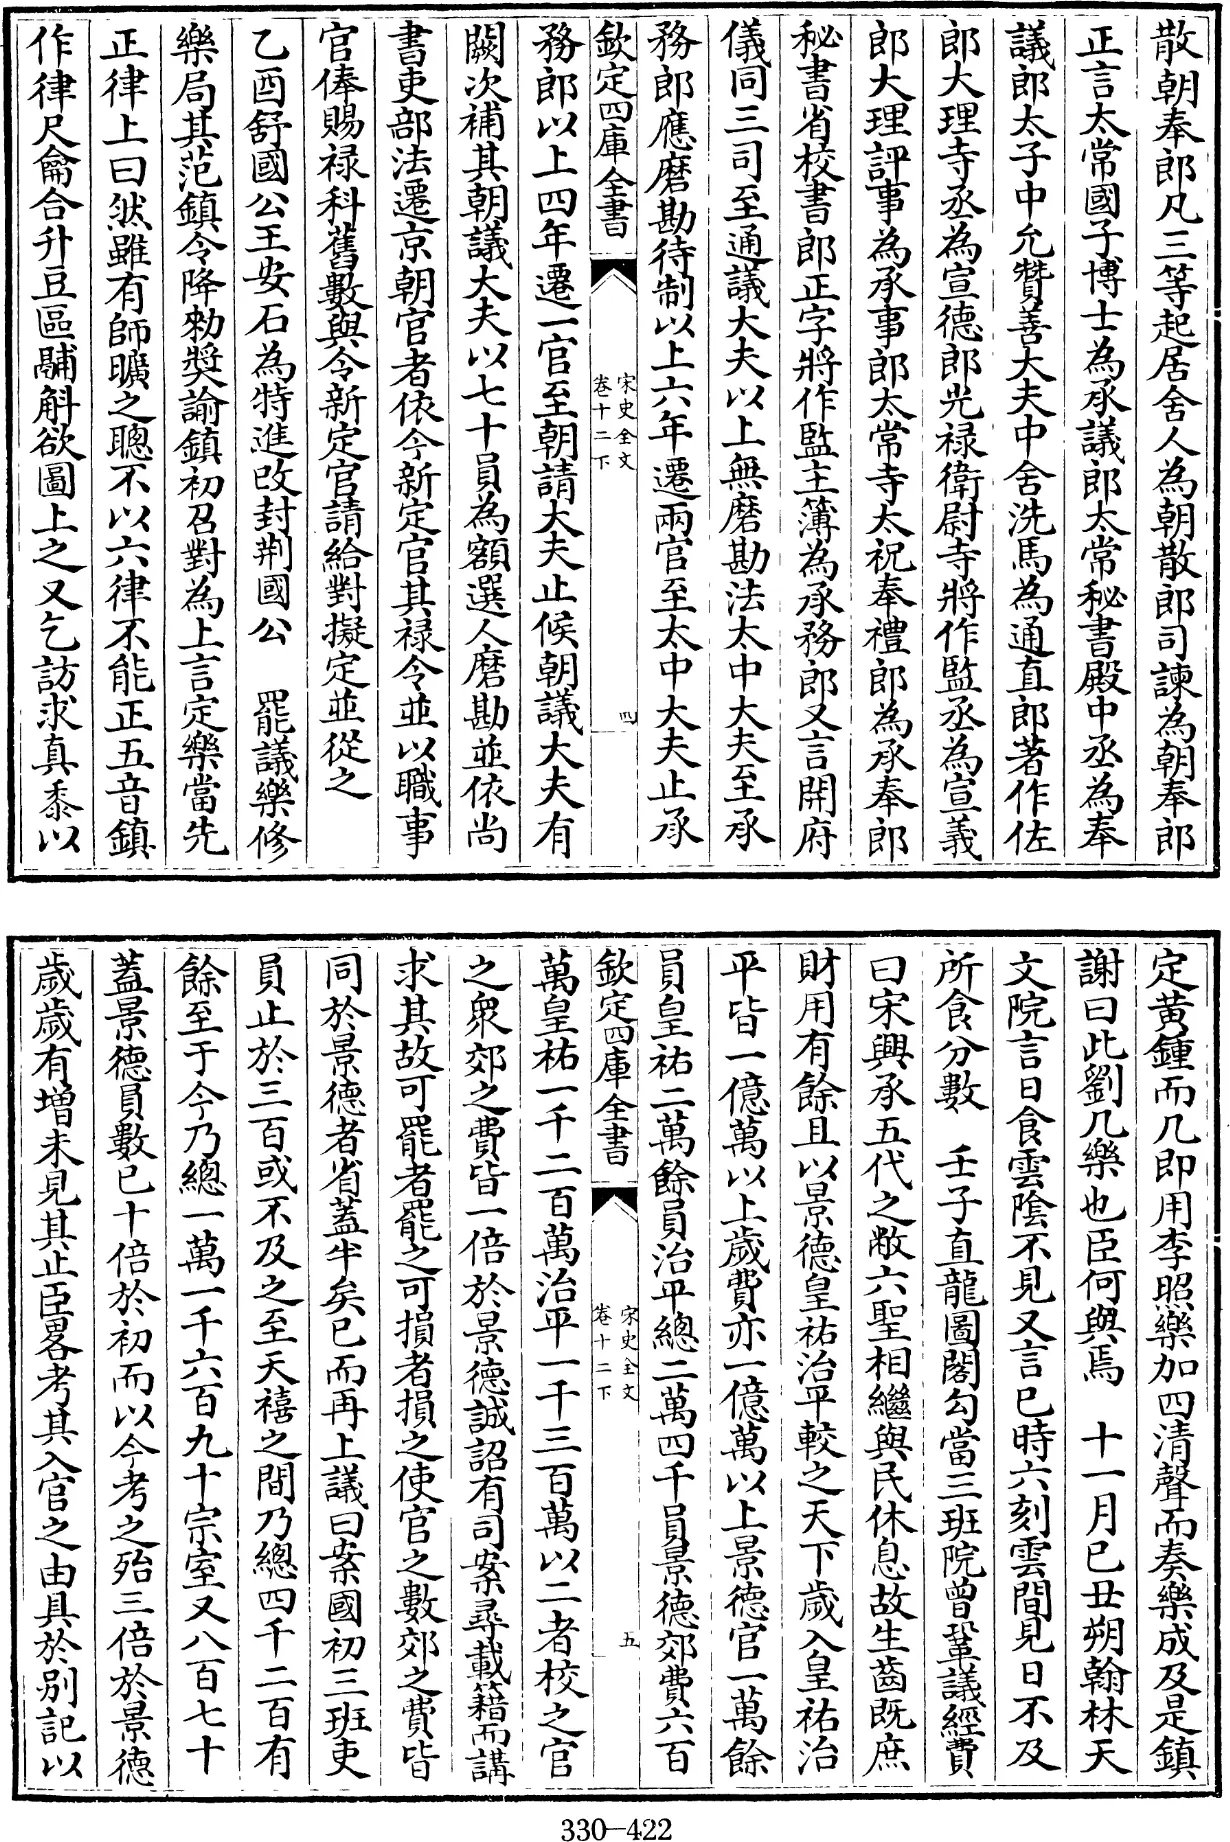 散朝奉郎凡三等起居舍人為朝散郎司諫為朝奉郎
正言太常國子博士為承議郎太常秘書殿中丞為奉
議郎太子中允贊善大夫中舍洗馬為通直郎著作佐
郎大理寺丞為宣德郎光禄衛尉寺將作監丞為宣義
郎大理評事為承事郎太常寺太祝奉禮郎為承奉郎
秘書省校書郎正字將作監主簿為承務郎又言開府
儀同三司至通議大夫以上無磨勘法太中大夫至承
務郎應磨勘待制以上六年遷兩官至太中大夫止承
欽定四庫全書
宋史全文
卷十二下
四
務郎以上四年遷一官至朝請大夫止候朝議大夫有
闕次補其朝議大夫以七十員為額選人磨勘並依尚
書吏部法遷京朝官者依今新定官其禄令並以職事
官俸賜禄科舊數與令新定官請給對擬定並從之
乙酉舒國公王安石為特進改封荆國公 罷議樂修
樂局其范鎮令降勅獎諭鎮初召對為上言定樂當先
正律上曰然雖有師曠之聰不以六律不能正五音鎮
作律尺龠合升豆區鬴斛欲圖上之又乞訪求真黍以
定黄鍾而几即用李照樂加四清聲而奏樂成及是鎮
謝曰此劉几樂也臣何與焉 十一月己丑朔翰林天
文院言日食雲陰不見又言巳時六刻雲間見日不及
所食分數 壬子直龍圖閣勾當三班院曾鞏議經費
曰宋興承五代之敝六聖相繼與民休息故生齒既庶
財用有餘且以景德皇祐治平較之天下歲入皇祐治
平皆一億萬以上歲費亦一億萬以上景德官一萬餘
員皇祐二萬餘員治平總二萬四千員景德郊費六百
欽定四庫全書
宋史全文
卷十二下
五
萬皇祐一千二百萬治平一千三百萬以二者校之官
之衆郊之費皆一倍於景德誠詔有司案尋載籍而講
求其故可罷者罷之可損者損之使官之數郊之費皆
同於景德者省蓋半矣已而再上議曰案國初三班吏
員止於三百或不及之至天禧之間乃總四千二百有
餘至于今乃總一萬一千六百九十宗室又八百七十
蓋景德員數已十倍於初而以今考之殆三倍於景德
歲歲有增未見其止臣畧考其入官之由具於别記以
330-422